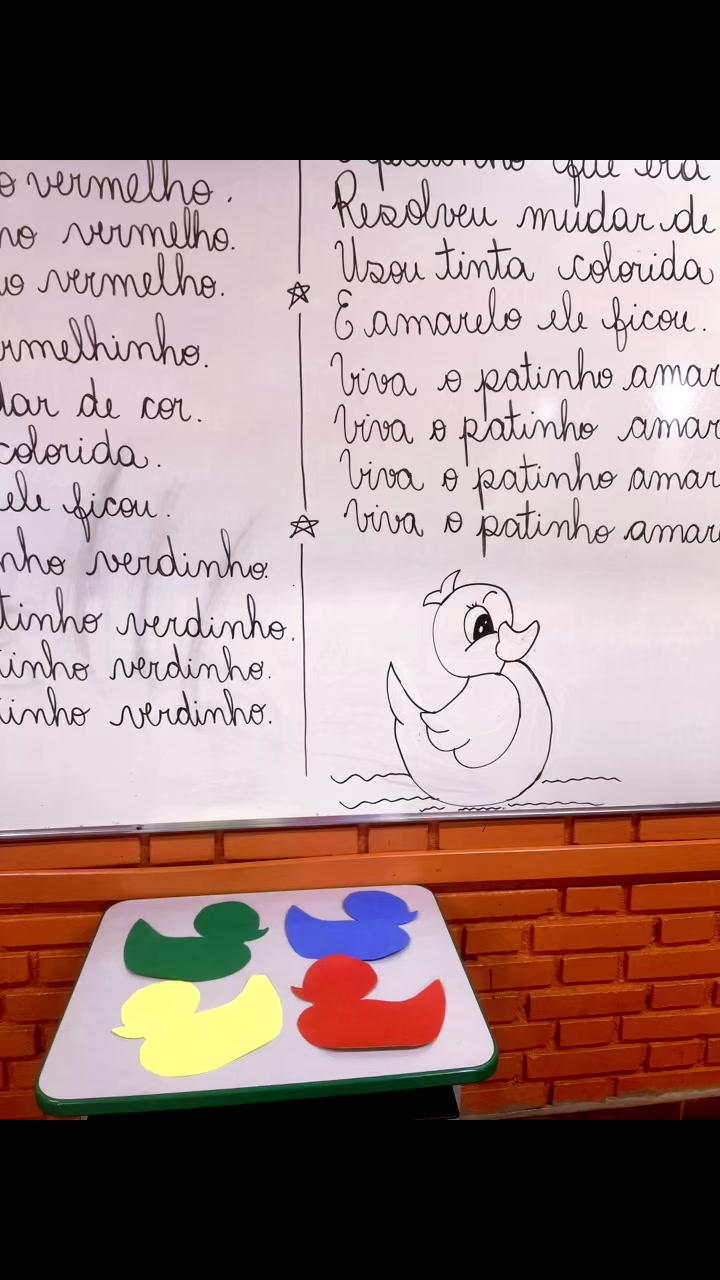 vermelho.
vermelho.
vermelho.
dar de cor.
colorida.
ele ficou.
verdinho.
verdinho.
verdinho.
verdinho.
que era
Resolveu mudar de
Usou tinta colorida
E amarelo ele ficou.
Viva o patinho
Viva o patinho
Viva o patinho
Viva o patinho